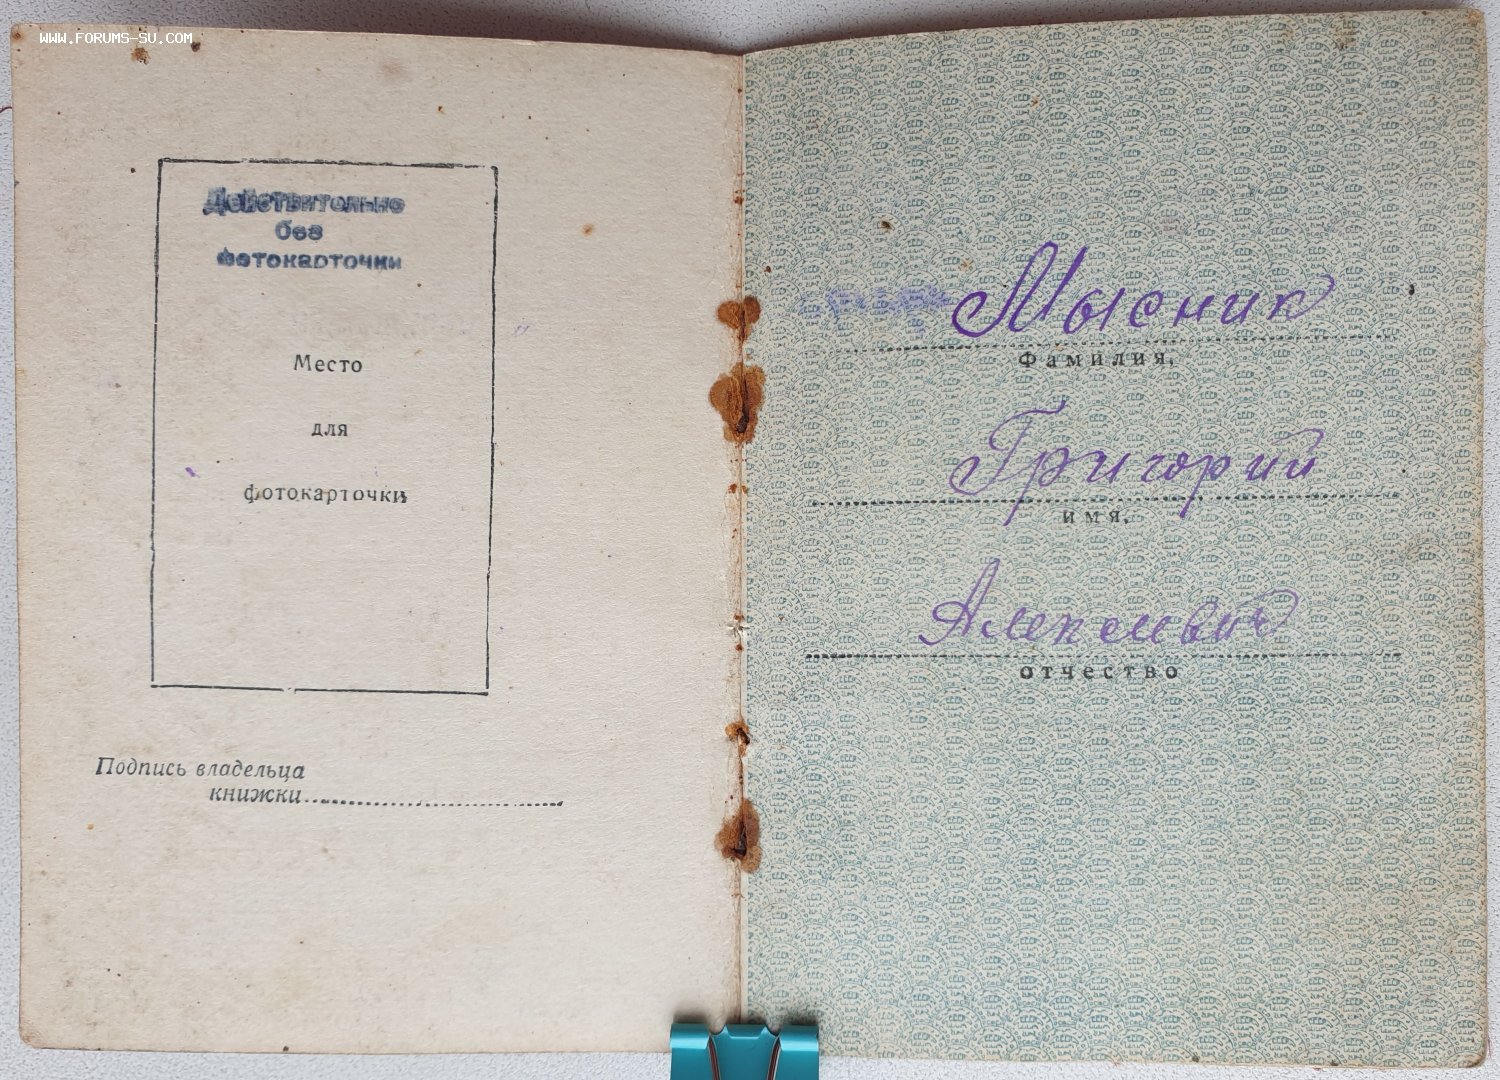 WWW.FORUMS-SU.COM
Действительно
без
фотокарточки
Место
для
фотокарточки
Подпись владельца
книжки
Мысник
Фамилия,
Григорий
имя,
Алексеевич
отчество